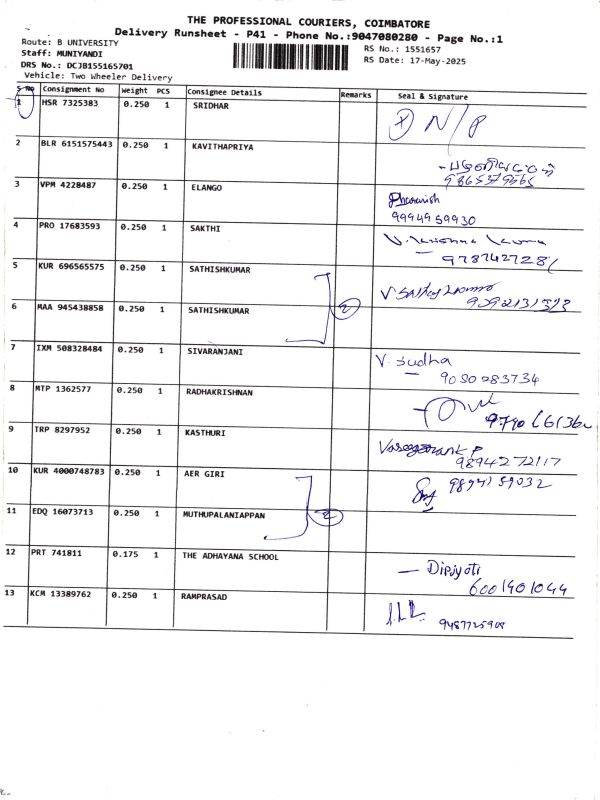 THE PROFESSIONAL COURIERS, COIMBATORE
Delivery Runsheet - P41 - Phone No.:9047080280 - Page No.:1
Route: B UNIVERSITY
Staff: MUNIYANDI
DRS No.: DCJB155165701
Vehicle: Two Wheeler Delivery
RS No.: 1551657
RS Date: 17-May-2025
S No Consignment No Weight PCS Consignee Details Remarks Seal & Signature
1 HSR 7325383 0.250 1 SRIDHAR N/P
2 BLR 6151575443 0.250 1 KAVITHAPRIYA
3 VPM 4228487 0.250 1 ELANGO
9994959930
4 PRO 17683593 0.250 1 SAKTHI
9787427281
5 KUR 696565575 0.250 1 SATHISHKUMAR
6 MAA 945438858 0.250 1 SATHISHKUMAR 2
7 IXM 508328484 0.250 1 SIVARANJANI V. Sudha
9030283734
8 MTP 1362577 0.250 1 RADHAKRISHNAN
9 TRP 8297952 0.250 1 KASTHURI
9894272117
10 KUR 4000748783 0.250 1 AER GIRI
9894159032
11 EDQ 16073713 0.250 1 MUTHUPALANIAPPAN 2
12 PRT 741811 0.175 1 THE ADHAYANA SCHOOL - Dipjyoti
6001901044
13 KCM 13389762 0.250 1 RAMPRASAD
9487725908